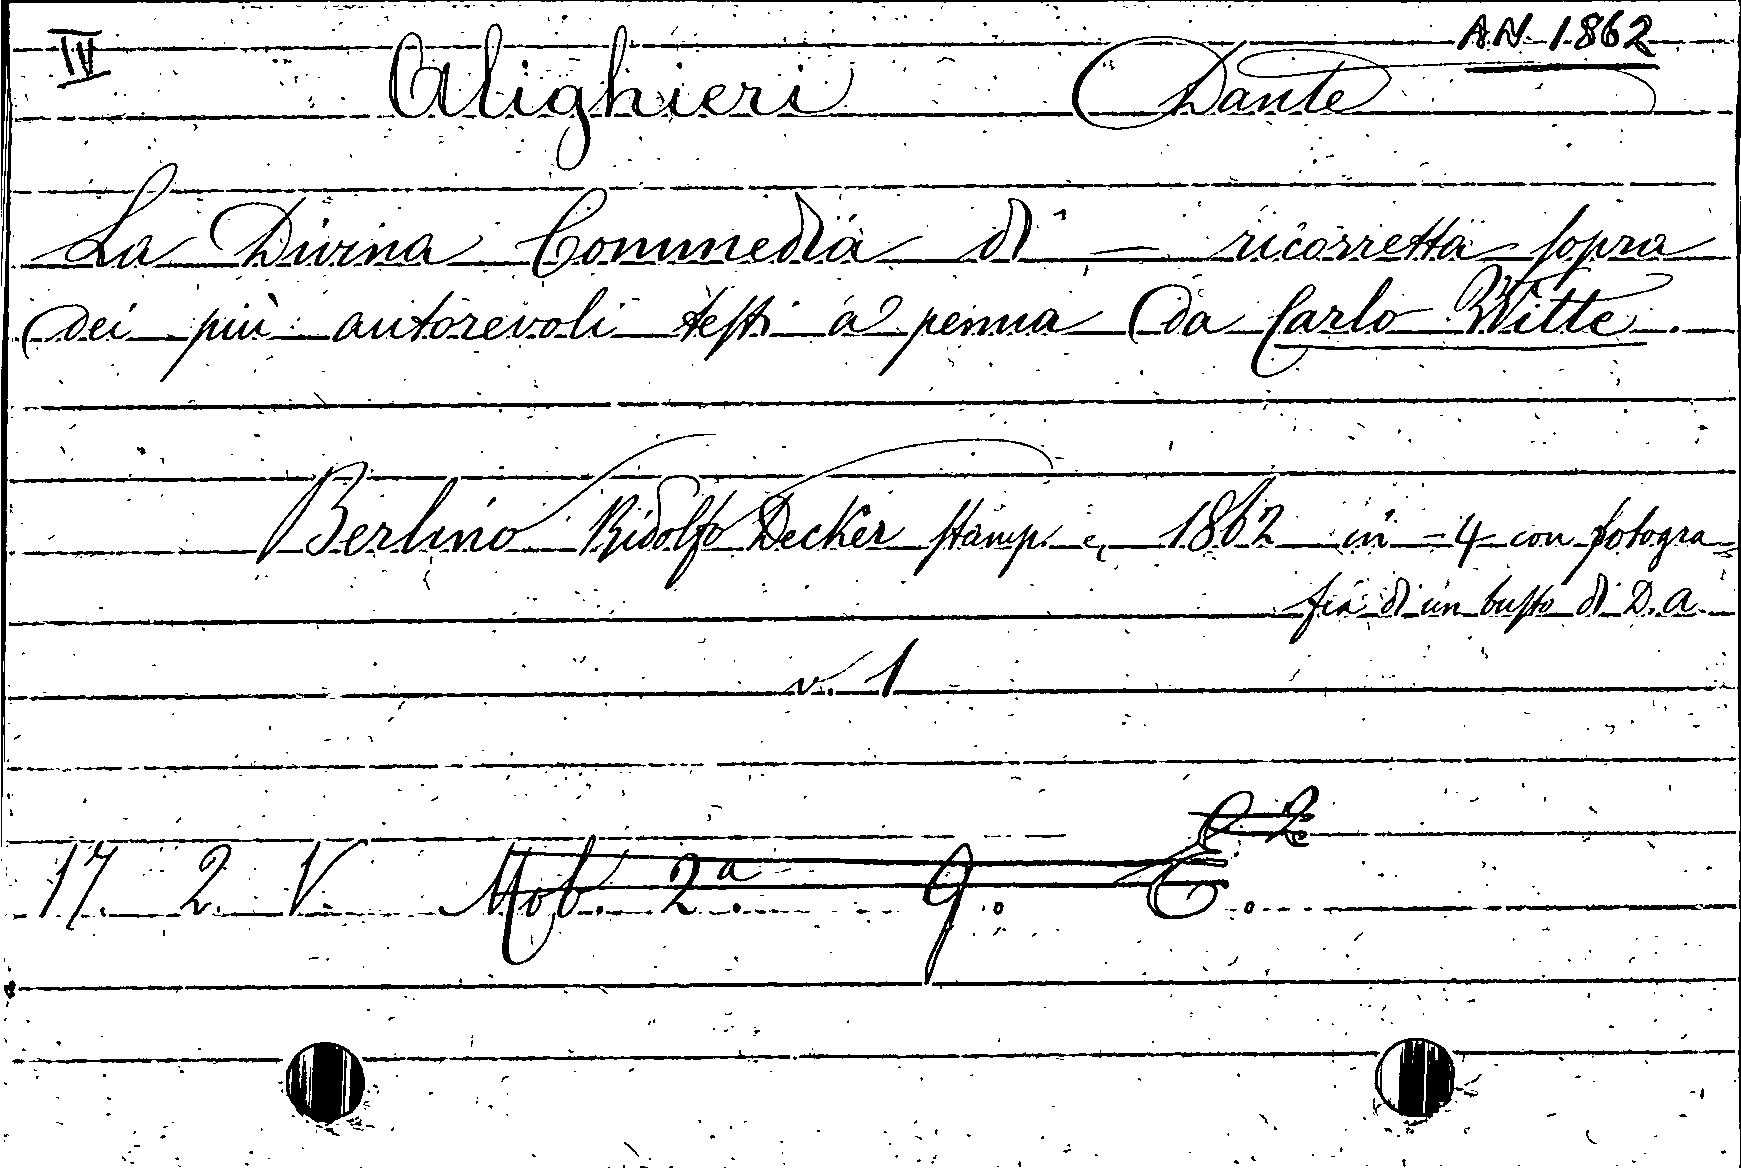 IV Alighieri Dante AN 1862
La Divina Commedia di — ricorretta sopra
dei più autorevoli testi a penna da Carlo Witte.
Berlino Ridolfo Decker stamp. e, 1862 in-4 con fotogra-
fia di un busto di D.A.
v. 1
E 2
17. 2. V. Mob. 2.a 9. E.